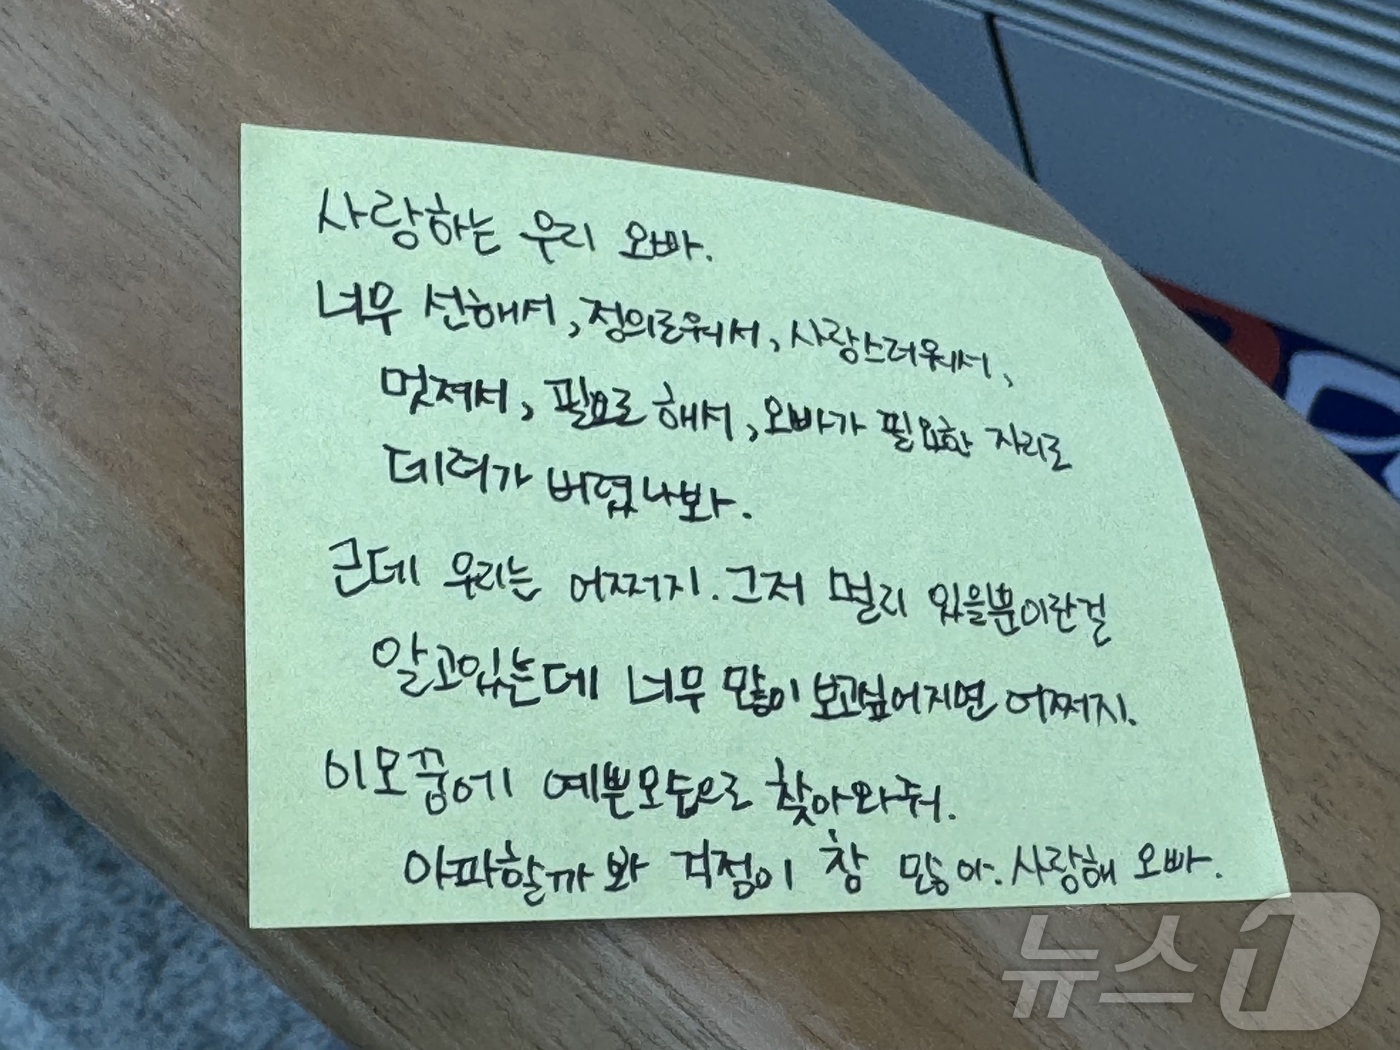 사랑하는 우리 오빠.
너무 선해서, 정의로워서, 사랑스러워서,
멋져서, 필요로 해서, 오빠가 필요한 자리로
데려가 버렸나봐.
근데 우리는 어쩌지. 그저 멀리 있을뿐이란걸
알고있는데 너무 많이 보고싶어지면 어쩌지.
이모꿈에 예쁜모습으로 찾아와줘.
아파할까봐 걱정이 참 많아. 사랑해 오빠.
뉴스1